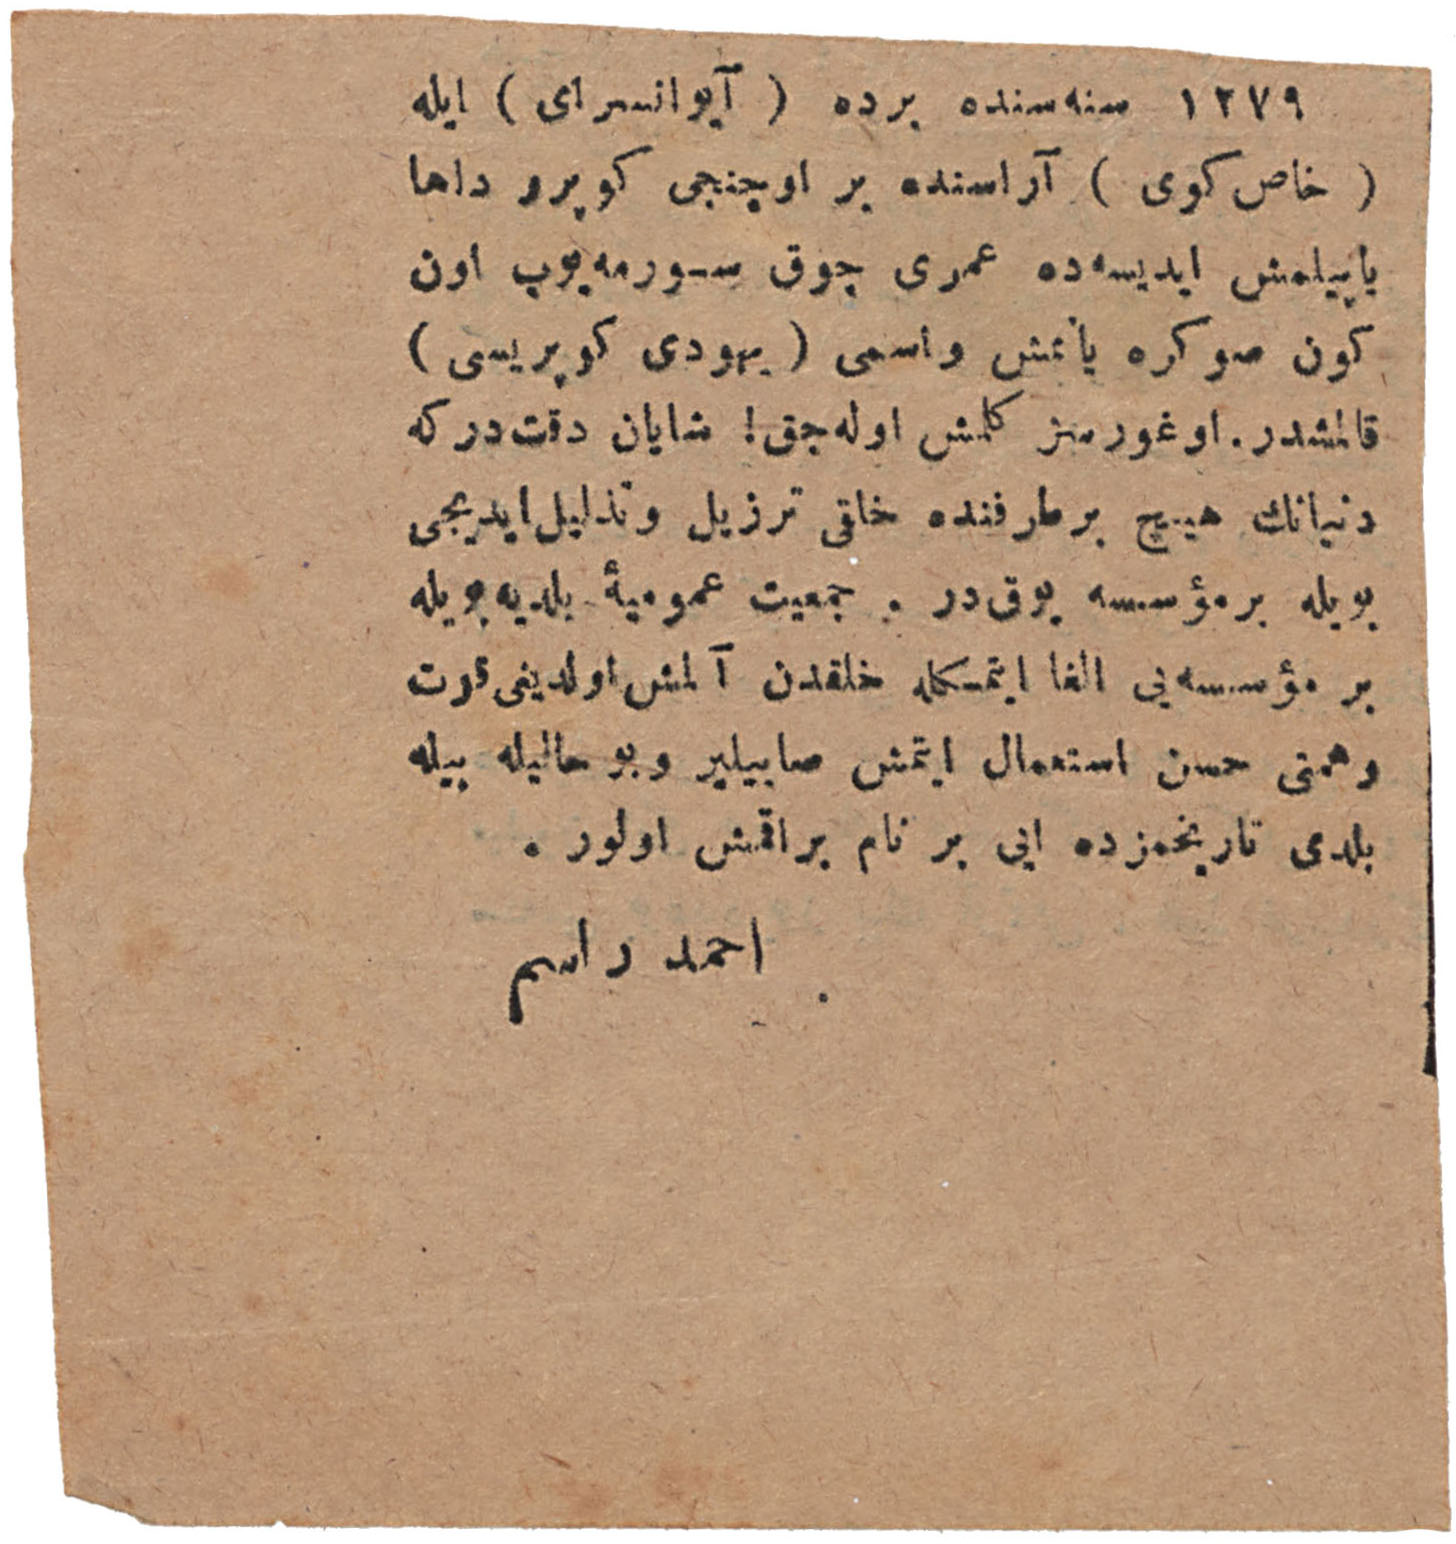 ١٢٧٩ سنه‌سنده برده ( آیوانسرای ) ایله
( خاص کوی ) آراسنده بر اوچنجی کوپرو داها
یاپیلمش ایدیسه‌ده عمری چوق سورمه‌یوب اون
کون صوکره یانمش واسمی ( یهودی کوپریسی )
قالمشدر. اوغورسز کلمش اوله‌جق! شایان دقت‌درکه
دنیانك هیچ برطرفنده خلقی ترزیل وتذلیل ایدیجی
بویله برمؤسسه یوق‌در . جمعیت عمومیهٔ بلدیه بویله
بر مؤسسه‌یی الغا ایتمکله خلقدن آلمش اولدیغی قوت
وهمتی حسن استعمال ایتمش صاییلیر وبو حالیله بیله
بلدی تاریخمزده ایی بر نام براقمش اولور .
احمد راسم